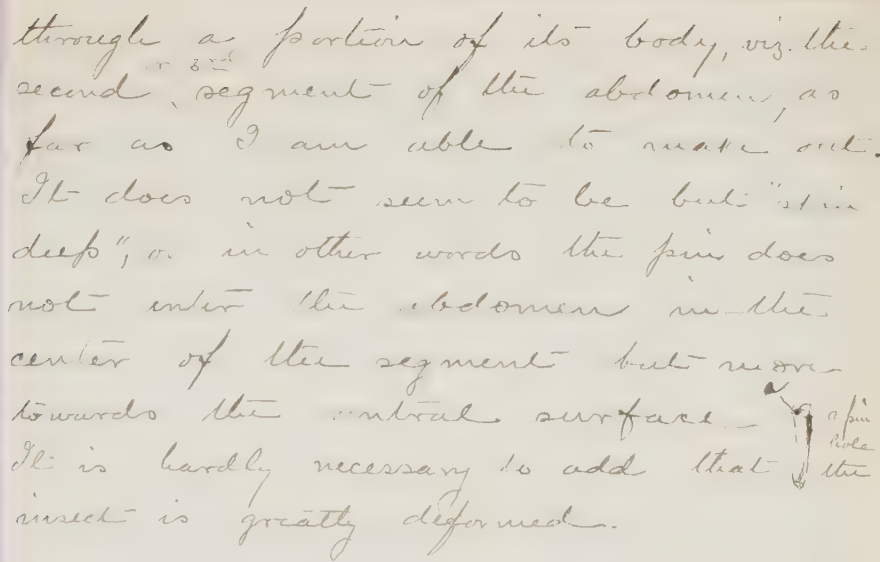 through a portion of its body, viz. the
or 3rd
second segment of the abdomen, as
far as I am able to make out.
It does not seem to be but "skin
deep", or in other words the pin does
not enter the abdomen in the
center of the segment but more
towards the ventral surface
a pin
hole
It is hardly necessary to add that the
insect is greatly deformed.